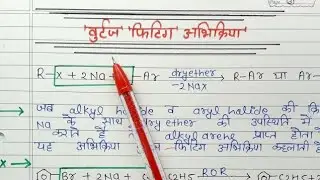 'वुर्टज 'फिटिग' अभिक्रिया'
R-X + 2Na + -Ar dry ether -2NaX R-Ar या Ar-
जब alkyl halide व aryl halide की
Na के साथ dry ether की उपस्थिति में
करते हैं alkyl arene प्राप्त होता
यह अभिक्रिया फिटिग अभिक्रिया कहलाती
Br + 2Na + C2H5 ROR C2H5+2